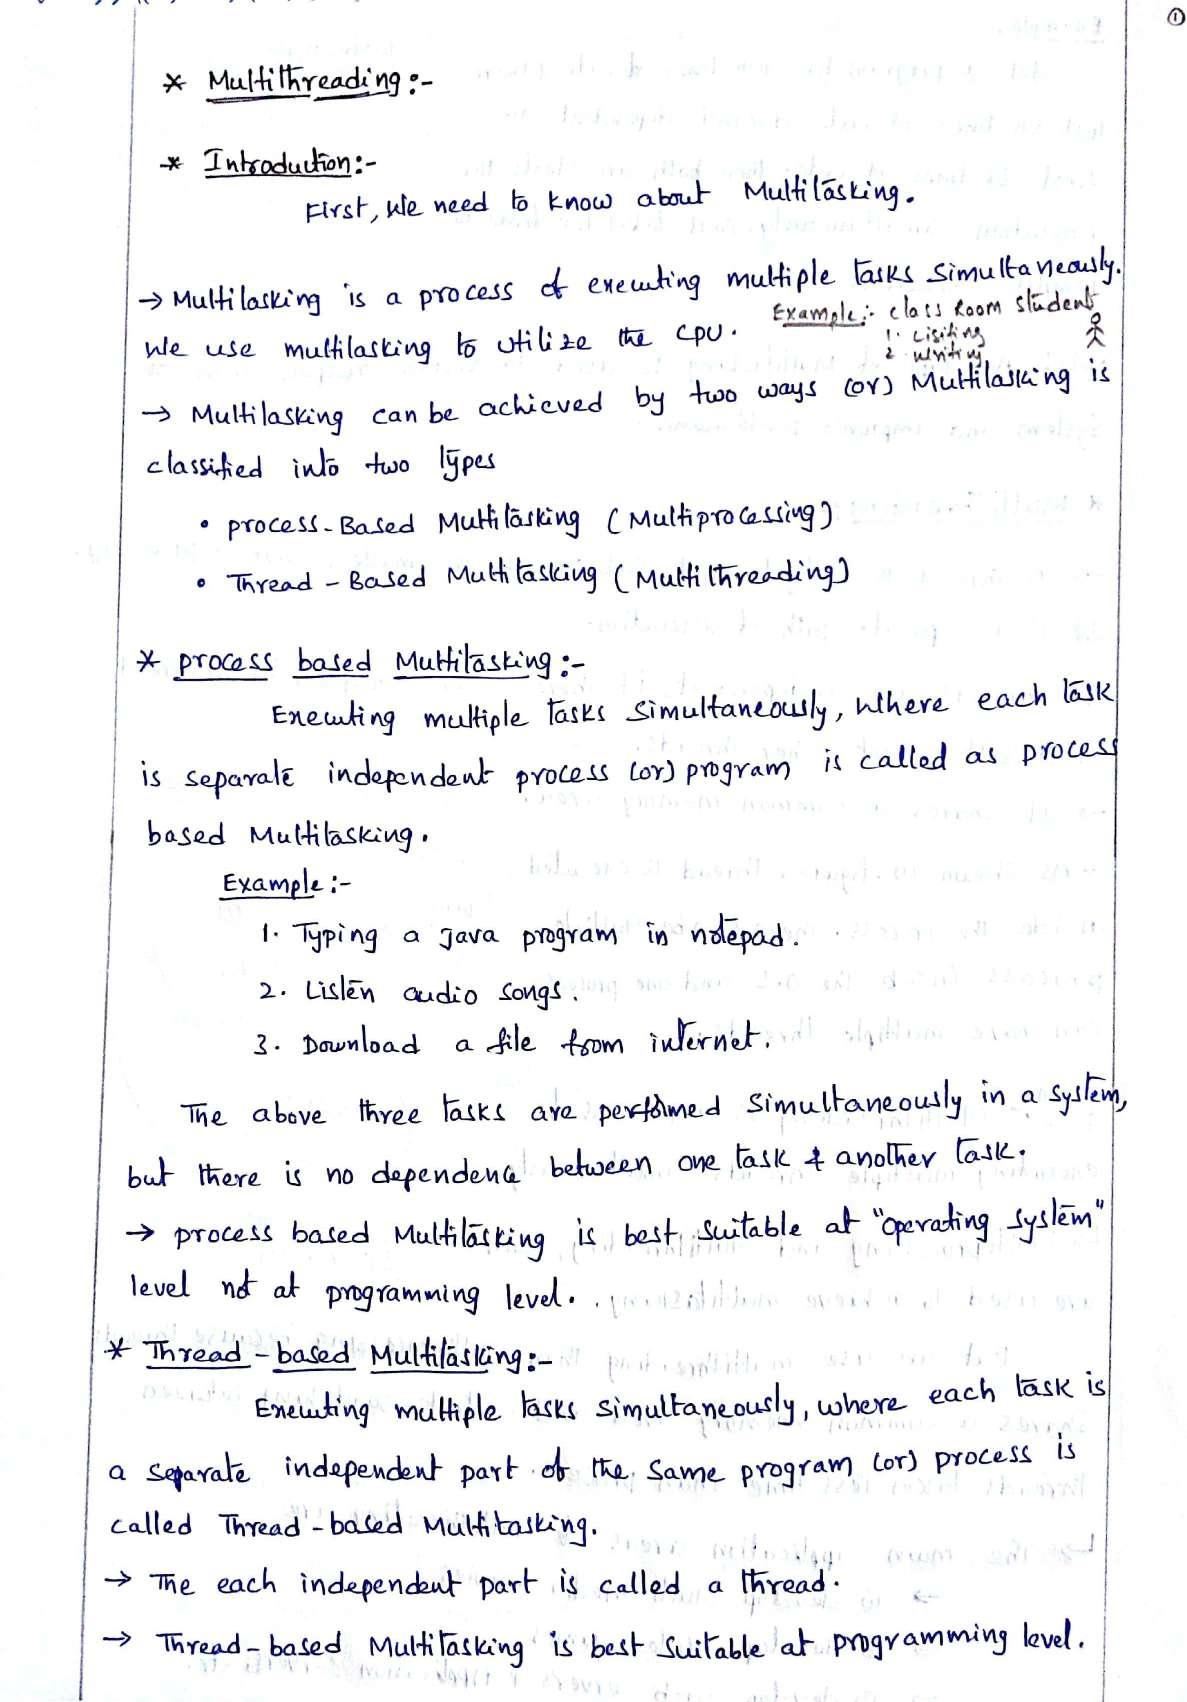 ①
* Multithreading :-
* Introduction :-
First, We need to know about Multitasking.
→ Multitasking is a process of executing multiple tasks simultaneously.
We use multitasking to utilize the CPU.
Example :- class Room student
1. Lisiting
2. writing
→ Multitasking can be achieved by two ways (or) Multitasking is
classified into two types
• process-Based Multitasking (Multiprocessing)
• Thread - Based Multitasking (Multithreading)
* process based Multitasking :-
Executing multiple tasks simultaneously, where each task
is separate independent process (or) program is called as process
based Multitasking.
Example :-
1. Typing a Java program in notepad.
2. Listen audio songs.
3. Download a file from internet.
The above three tasks are performed simultaneously in a system,
but there is no dependence between one task & another task.
→ process based Multitasking is best suitable at "operating system"
level not at programming level.
* Thread - based Multitasking :-
Executing multiple tasks simultaneously, where each task is
a separate independent part of the same program (or) process is
called Thread - based Multitasking.
→ The each independent part is called a thread.
→ Thread - based Multitasking is best suitable at programming level.